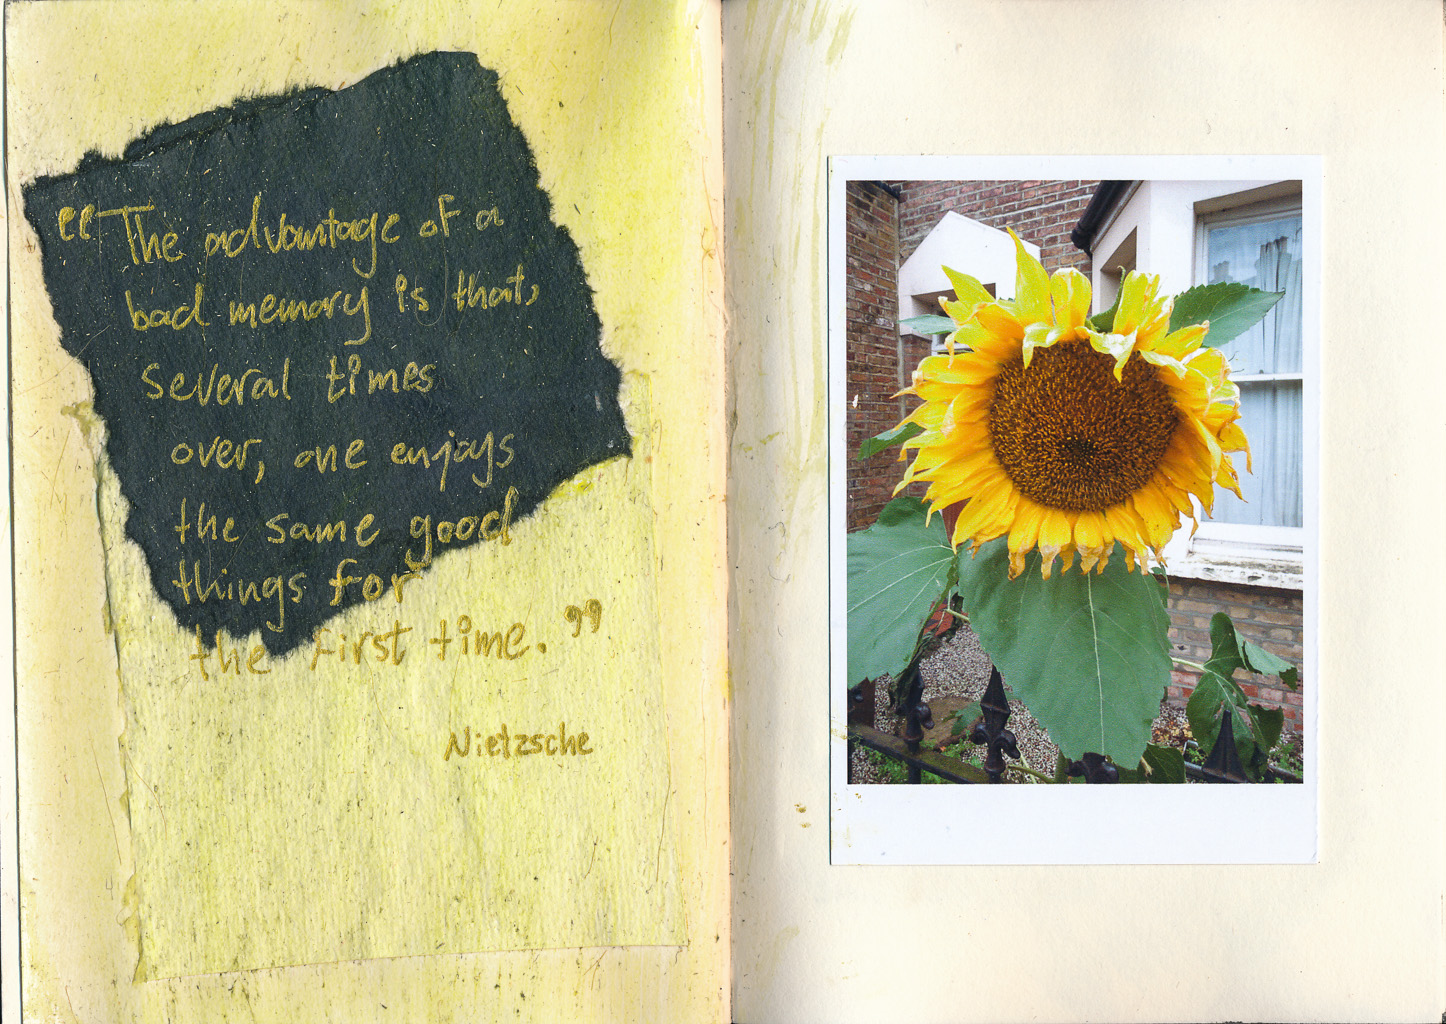 “The advantage of a
bad memory is that,
several times
over, one enjoys
the same good
things for
the first time.”
Nietzsche